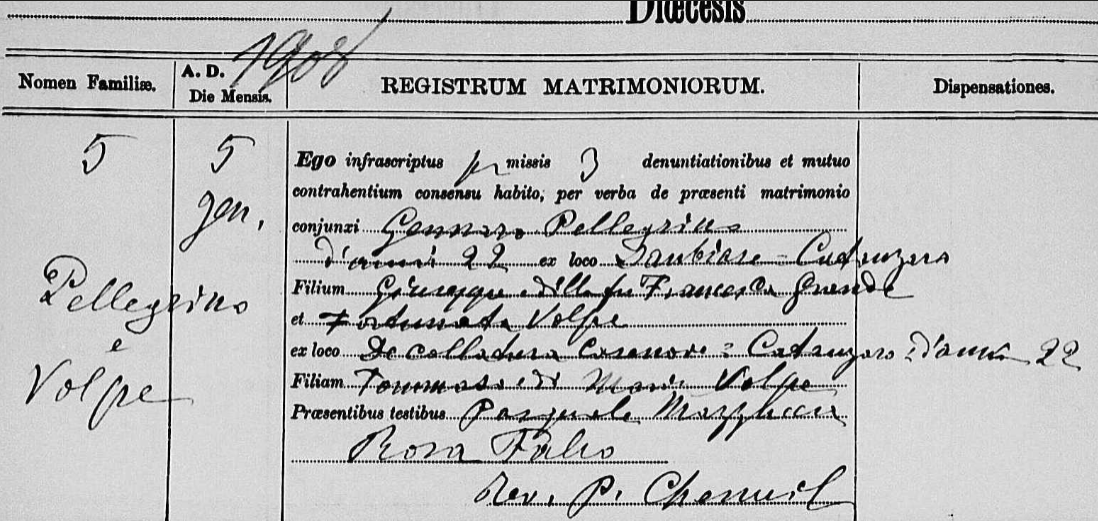 Diœcesis
1908
Nomen Familiæ.
A. D.
Die Mensis.
REGISTRUM MATRIMONIORUM.
Dispensationes.
5
Pellegrino
e
Volpe
5
Gen.
Ego infrascriptus præmissis 3 denuntiationibus et mutuo
contrahentium consensu habito, per verba de præsenti matrimonio
conjunxi Gennaro Pellegrino
d'anni 22 ex loco Sanbiase = Catanzaro
Filium Giuseppe e della fu Francesca Grande
et Fortunata Volpe
ex loco Decollatura Casenove = Catanzaro d'anni 22
Filiam Tommaso e di Maria Volpe
Præsentibus testibus Pasquale
Rosa Falco
Rev. P.